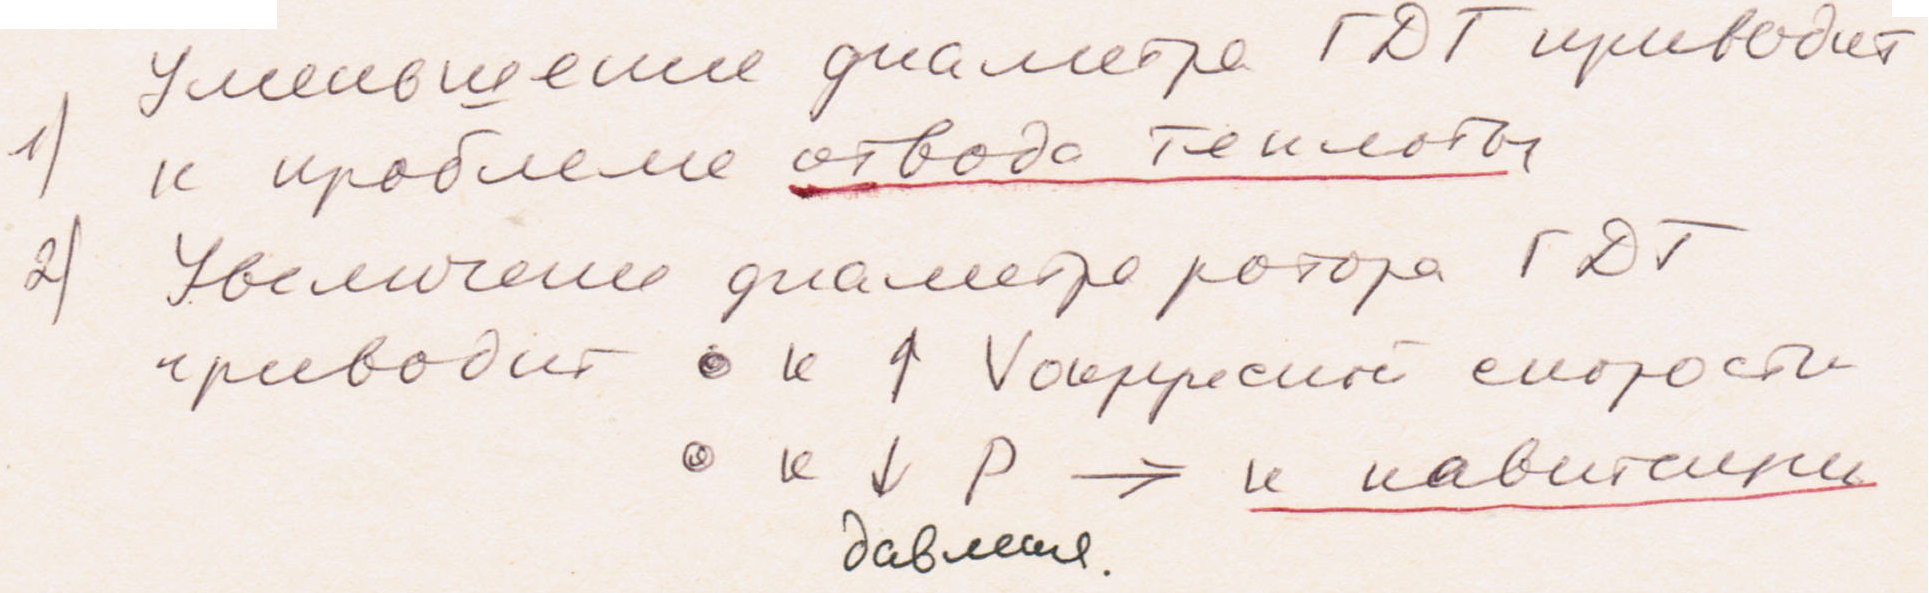 Уменьшение диаметра ГДТ приводит
1) к проблеме отвода теплоты
2) Увеличение диаметра ротора ГДТ
приводит • к ↑ Vокружной скорости
• к ↓ P → к кавитации
давления.